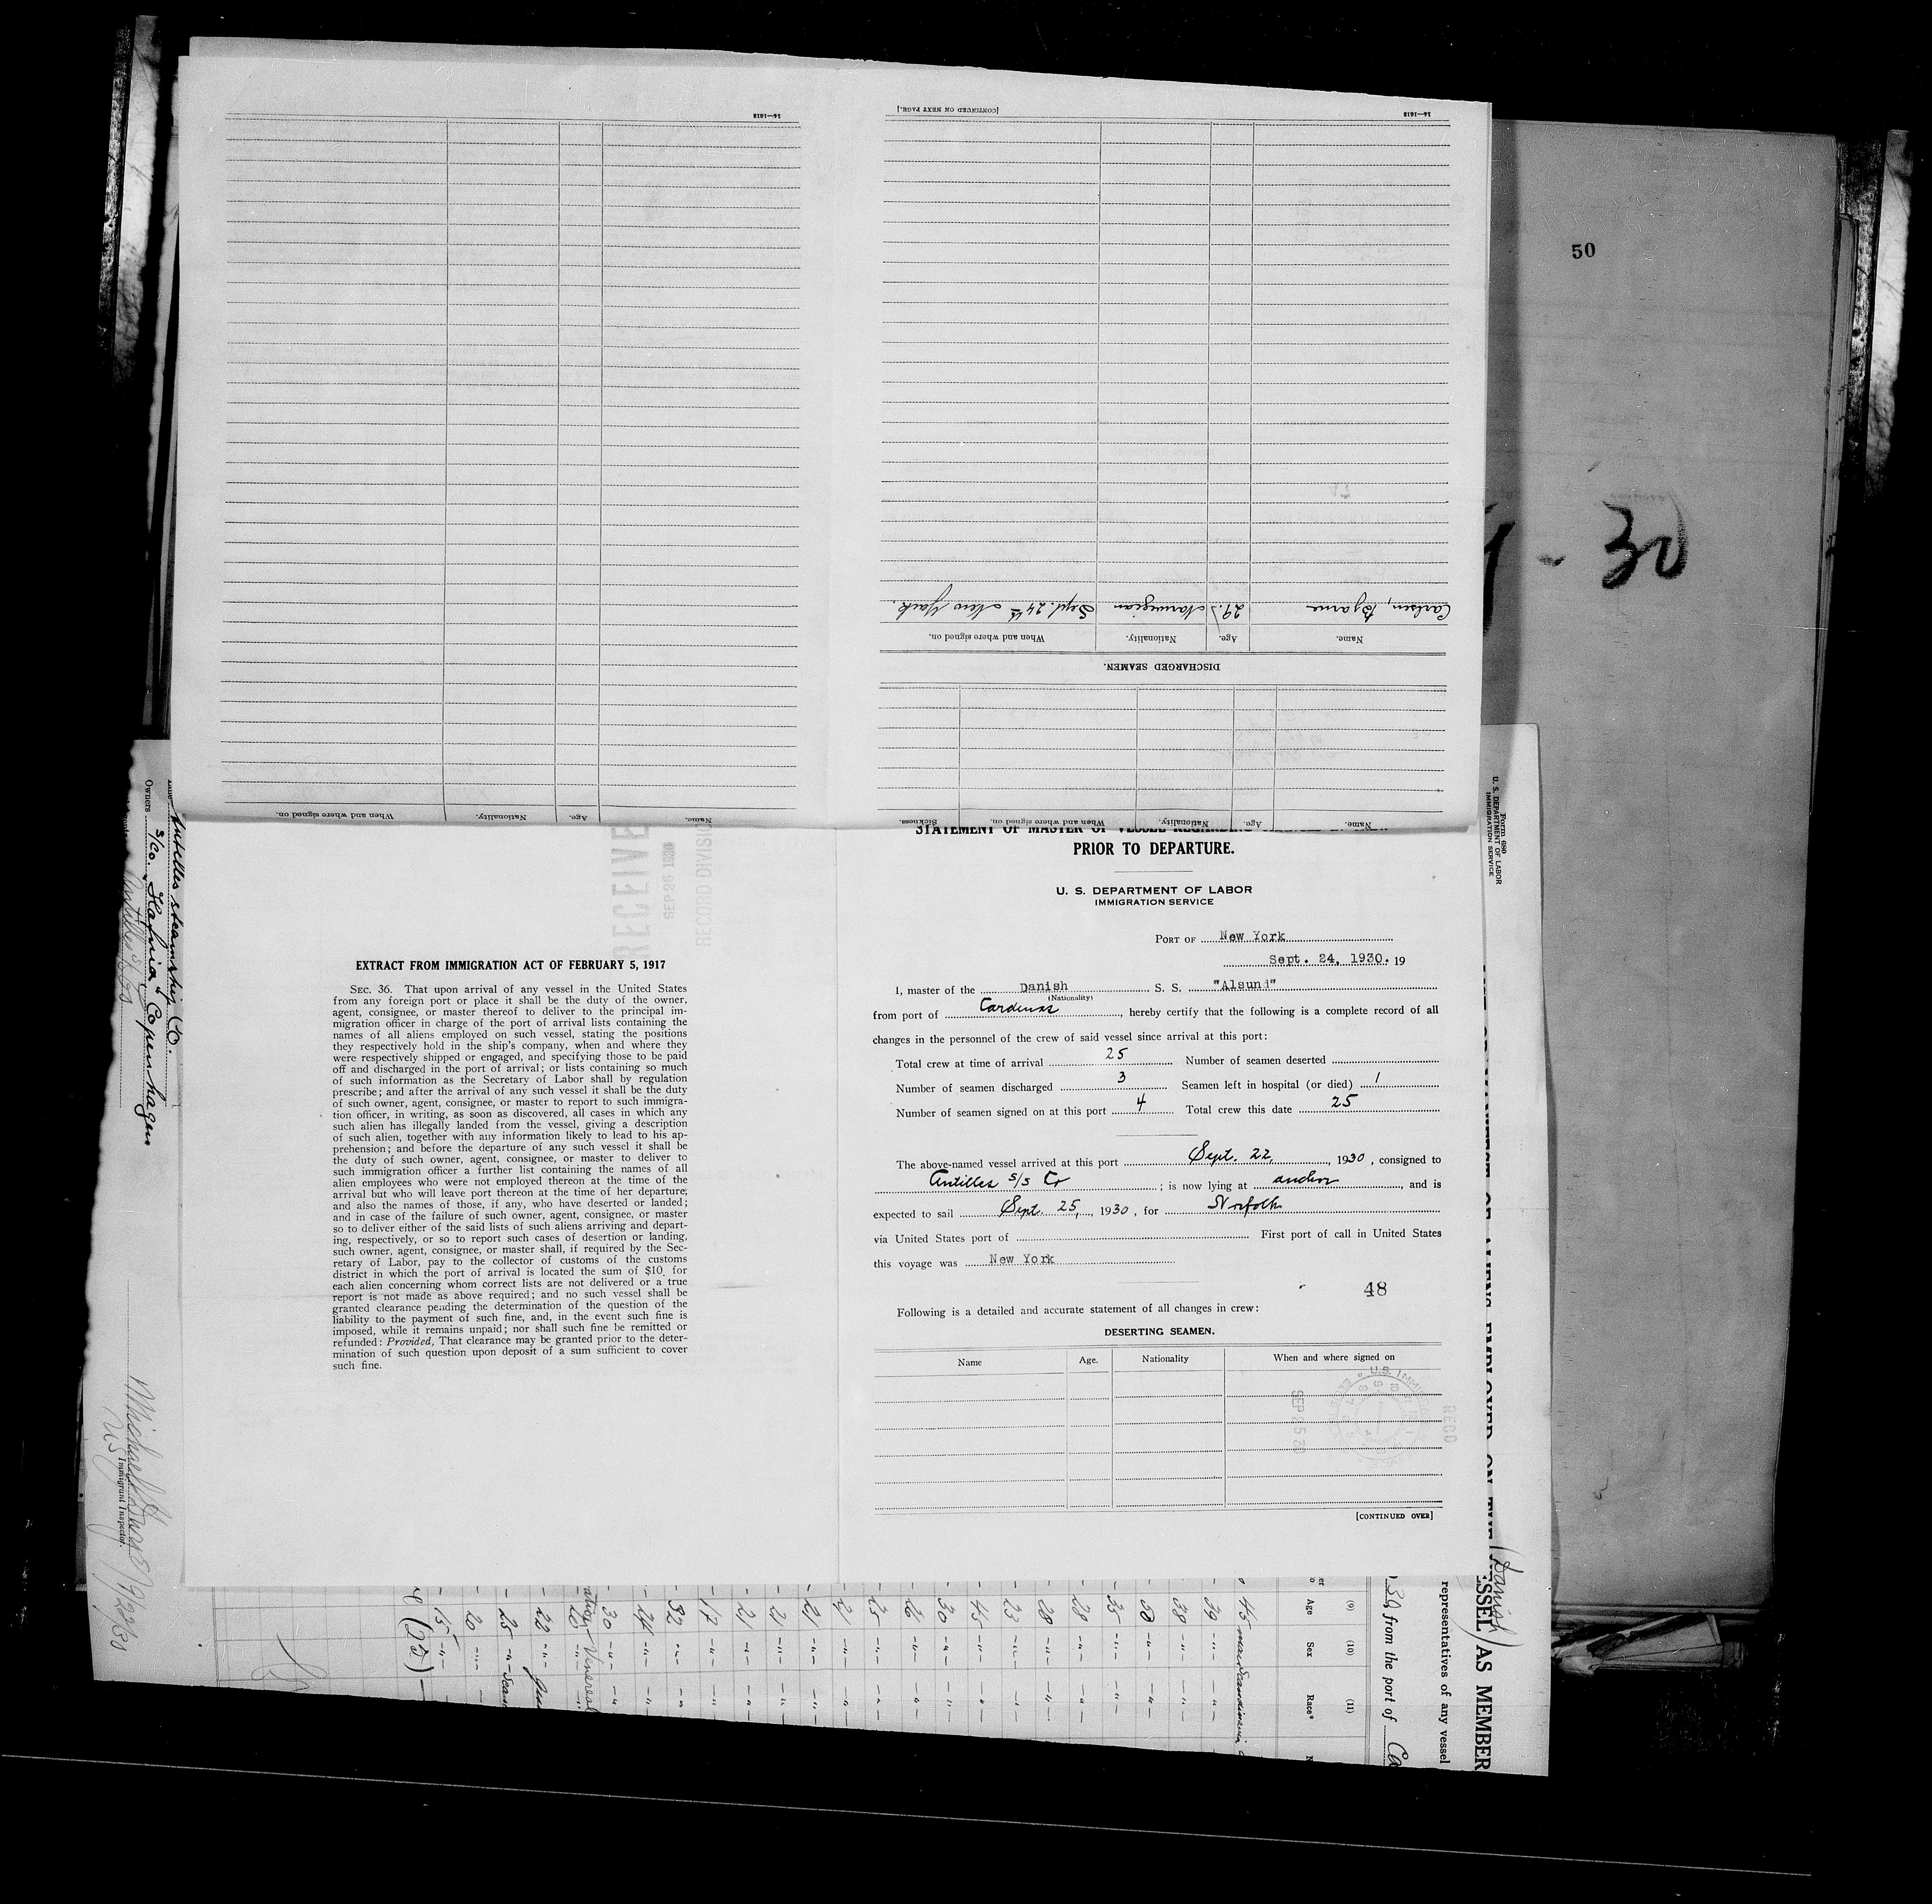 [CONTINUED ON NEXT PAGE.]
16—1612
16—1612
Carlsen, Bjarne 29. Norwegian Sept. 24th New York.
Name. Age. Nationality. When and where signed on.
DISCHARGED SEAMEN.
Name. Age. Nationality. When and where signed on. Sickness.
Name. Age. Nationality. When and where signed on.
50
- 30
STATEMENT OF MASTER OF VESSEL REGARDING
PRIOR TO DEPARTURE.
U. S. DEPARTMENT OF LABOR
IMMIGRATION SERVICE
PORT OF New York
Sept. 24, 1930. 19
I, master of the Danish S. S. "Alsund"
(Nationality)
from port of Cardenas, hereby certify that the following is a complete record of all
changes in the personnel of the crew of said vessel since arrival at this port:
Total crew at time of arrival 25 Number of seamen deserted
Number of seamen discharged 3 Seamen left in hospital (or died) 1
Number of seamen signed on at this port 4 Total crew this date 25
The above-named vessel arrived at this port Sept. 22, 1930, consigned to
Antilles S/S Co ; is now lying at anchor, and is
expected to sail Sept. 25, 1930, for Norfolk
via United States port of First port of call in United States
this voyage was New York
48
Following is a detailed and accurate statement of all changes in crew:
DESERTING SEAMEN.
Name Age. Nationality When and where signed on
SEP 25 30
RECD
U.S. IMM
[CONTINUED OVER]
RECEIVE
SEP 26 1930
RECORD DIVISIO
EXTRACT FROM IMMIGRATION ACT OF FEBRUARY 5, 1917
SEC. 36. That upon arrival of any vessel in the United States
from any foreign port or place it shall be the duty of the owner,
agent, consignee, or master thereof to deliver to the principal im-
migration officer in charge of the port of arrival lists containing the
names of all aliens employed on such vessel, stating the positions
they respectively hold in the ship's company, when and where they
were respectively shipped or engaged, and specifying those to be paid
off and discharged in the port of arrival; or lists containing so much
of such information as the Secretary of Labor shall by regulation
prescribe; and after the arrival of any such vessel it shall be the duty
of such owner, agent, consignee, or master to report to such immigra-
tion officer, in writing, as soon as discovered, all cases in which any
such alien has illegally landed from the vessel, giving a description
of such alien, together with any information likely to lead to his ap-
prehension; and before the departure of any such vessel it shall be
the duty of such owner, agent, consignee, or master to deliver to
such immigration officer a further list containing the names of all
alien employees who were not employed thereon at the time of the
arrival but who will leave port thereon at the time of her departure,
and also the names of those, if any, who have deserted or landed;
and in case of the failure of such owner, agent, consignee, or master
so to deliver either of the said lists of such aliens arriving and depart-
ing, respectively, or so to report such cases of desertion or landing,
such owner, agent, consignee, or master shall, if required by the Sec-
retary of Labor, pay to the collector of customs of the customs
district in which the port of arrival is located the sum of $10 for
each alien concerning whom correct lists are not delivered or a true
report is not made as above required; and no such vessel shall be
granted clearance pending the determination of the question of the
liability to the payment of such fine, and, in the event such fine is
imposed, while it remains unpaid; nor shall such fine be remitted or
refunded: Provided, That clearance may be granted prior to the deter-
mination of such question upon deposit of a sum sufficient to cover
such fine.
Antilles steamship Co.
Owners S/Co. "Hafnia" Copenhagen
Immigrant Inspector.
9/22/30
Form 680
U. S. DEPARTMENT OF LABOR
IMMIGRATION SERVICE
Danish
ESSEL AS MEMBER
representatives of any vessel
30 from the port of Ca
(9) (10) (11)
Age Sex Race*
45 Scandinavia
39
38
50
35
28
28
23
45
30
26
25
21
21
21
21
17
32
24
30
26 Venereal
22
25 Scan
20
15
(25)